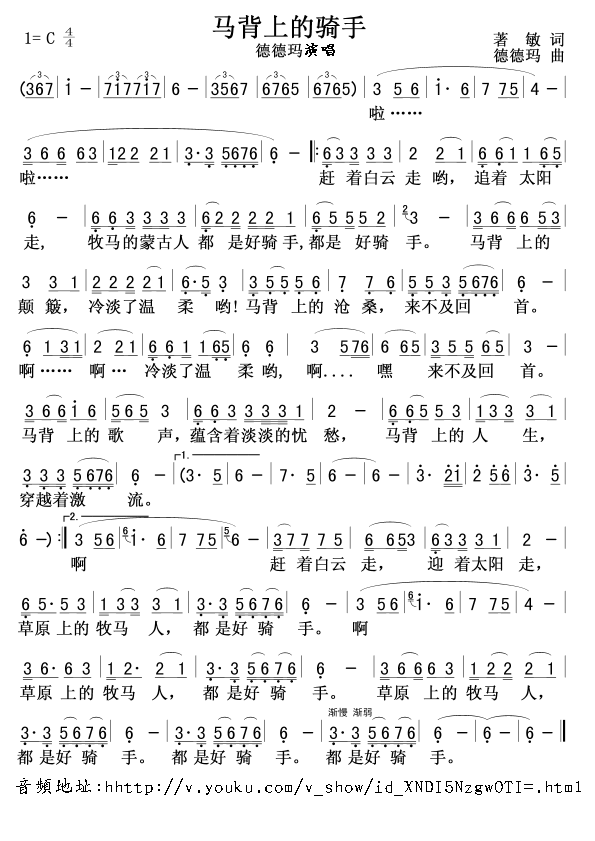 马背上的骑手
1= C 4/4
德德玛演唱
著 敏 词
德德玛 曲
(367 i - 717717 6 - 3567 6765 6765) 3 5 6 i· 6 7 75 4 -
啦……
3 6 6 63 122 2 21 3· 3 5676 6 - ‖: 6333 33 2 2 1 661 1 65
啦…… 赶 着白云 走 哟， 追着 太阳
6 - 663 333 622 2 2 1 6 555 2 3 - 366 6 53
走， 牧马的蒙古人 都 是好骑手,都是 好骑 手。 马背 上的
3 3 1 222 21 6·5 3 3 555 6 7 7 6 353 5676 6 -
颠 簸， 冷淡了温 柔 哟! 马背 上的 沧 桑， 来不及回 首。
6 131 2 21 661 165 6 6 3 576 6 65 355 65 3 -
啊…… 啊… 冷淡了温 柔 哟, 啊.... 嘿 来不及回 首。
366 i 6 565 5 663 3332 2 - 665 53 133 3 1
马背 上的 歌 声，蕴含着淡淡的忧 愁， 马背 上的人 生，
333 5676 6 - 1. (3· 5 6 - 7· 5 6 - 3· 21 2 56 3· 5
穿越着激 流。
6 -) :‖ 2. 3 56 6 i· 6 7 75 5 6 - 377 75 3 23 6 653 633 32
啊 赶 着白云 走， 迎 着太阳 走，
65 5·5 133 3 1 3· 3 5676 6 - 3 56 6 i· 6 7 75 4 -
草原 上的 牧马 人， 都 是好 骑 手。 啊
36· 36· 12· 2 1 3· 3 5676 6 - 663 36· 12· 2 1
草原 上的牧马 人， 都 是好 骑 手。 草原 上的牧马 人，
渐慢 渐弱
3· 3 5676 6 - 3· 3 5676 6 - 3· 3 5676 6 - 6 - ‖
都是好 骑 手。 都 是好 骑 手。 都 是好 骑 手。
音頻地址:hhttp://v.youku.com/v_show/id_XNDI5NzgwOTI=.html